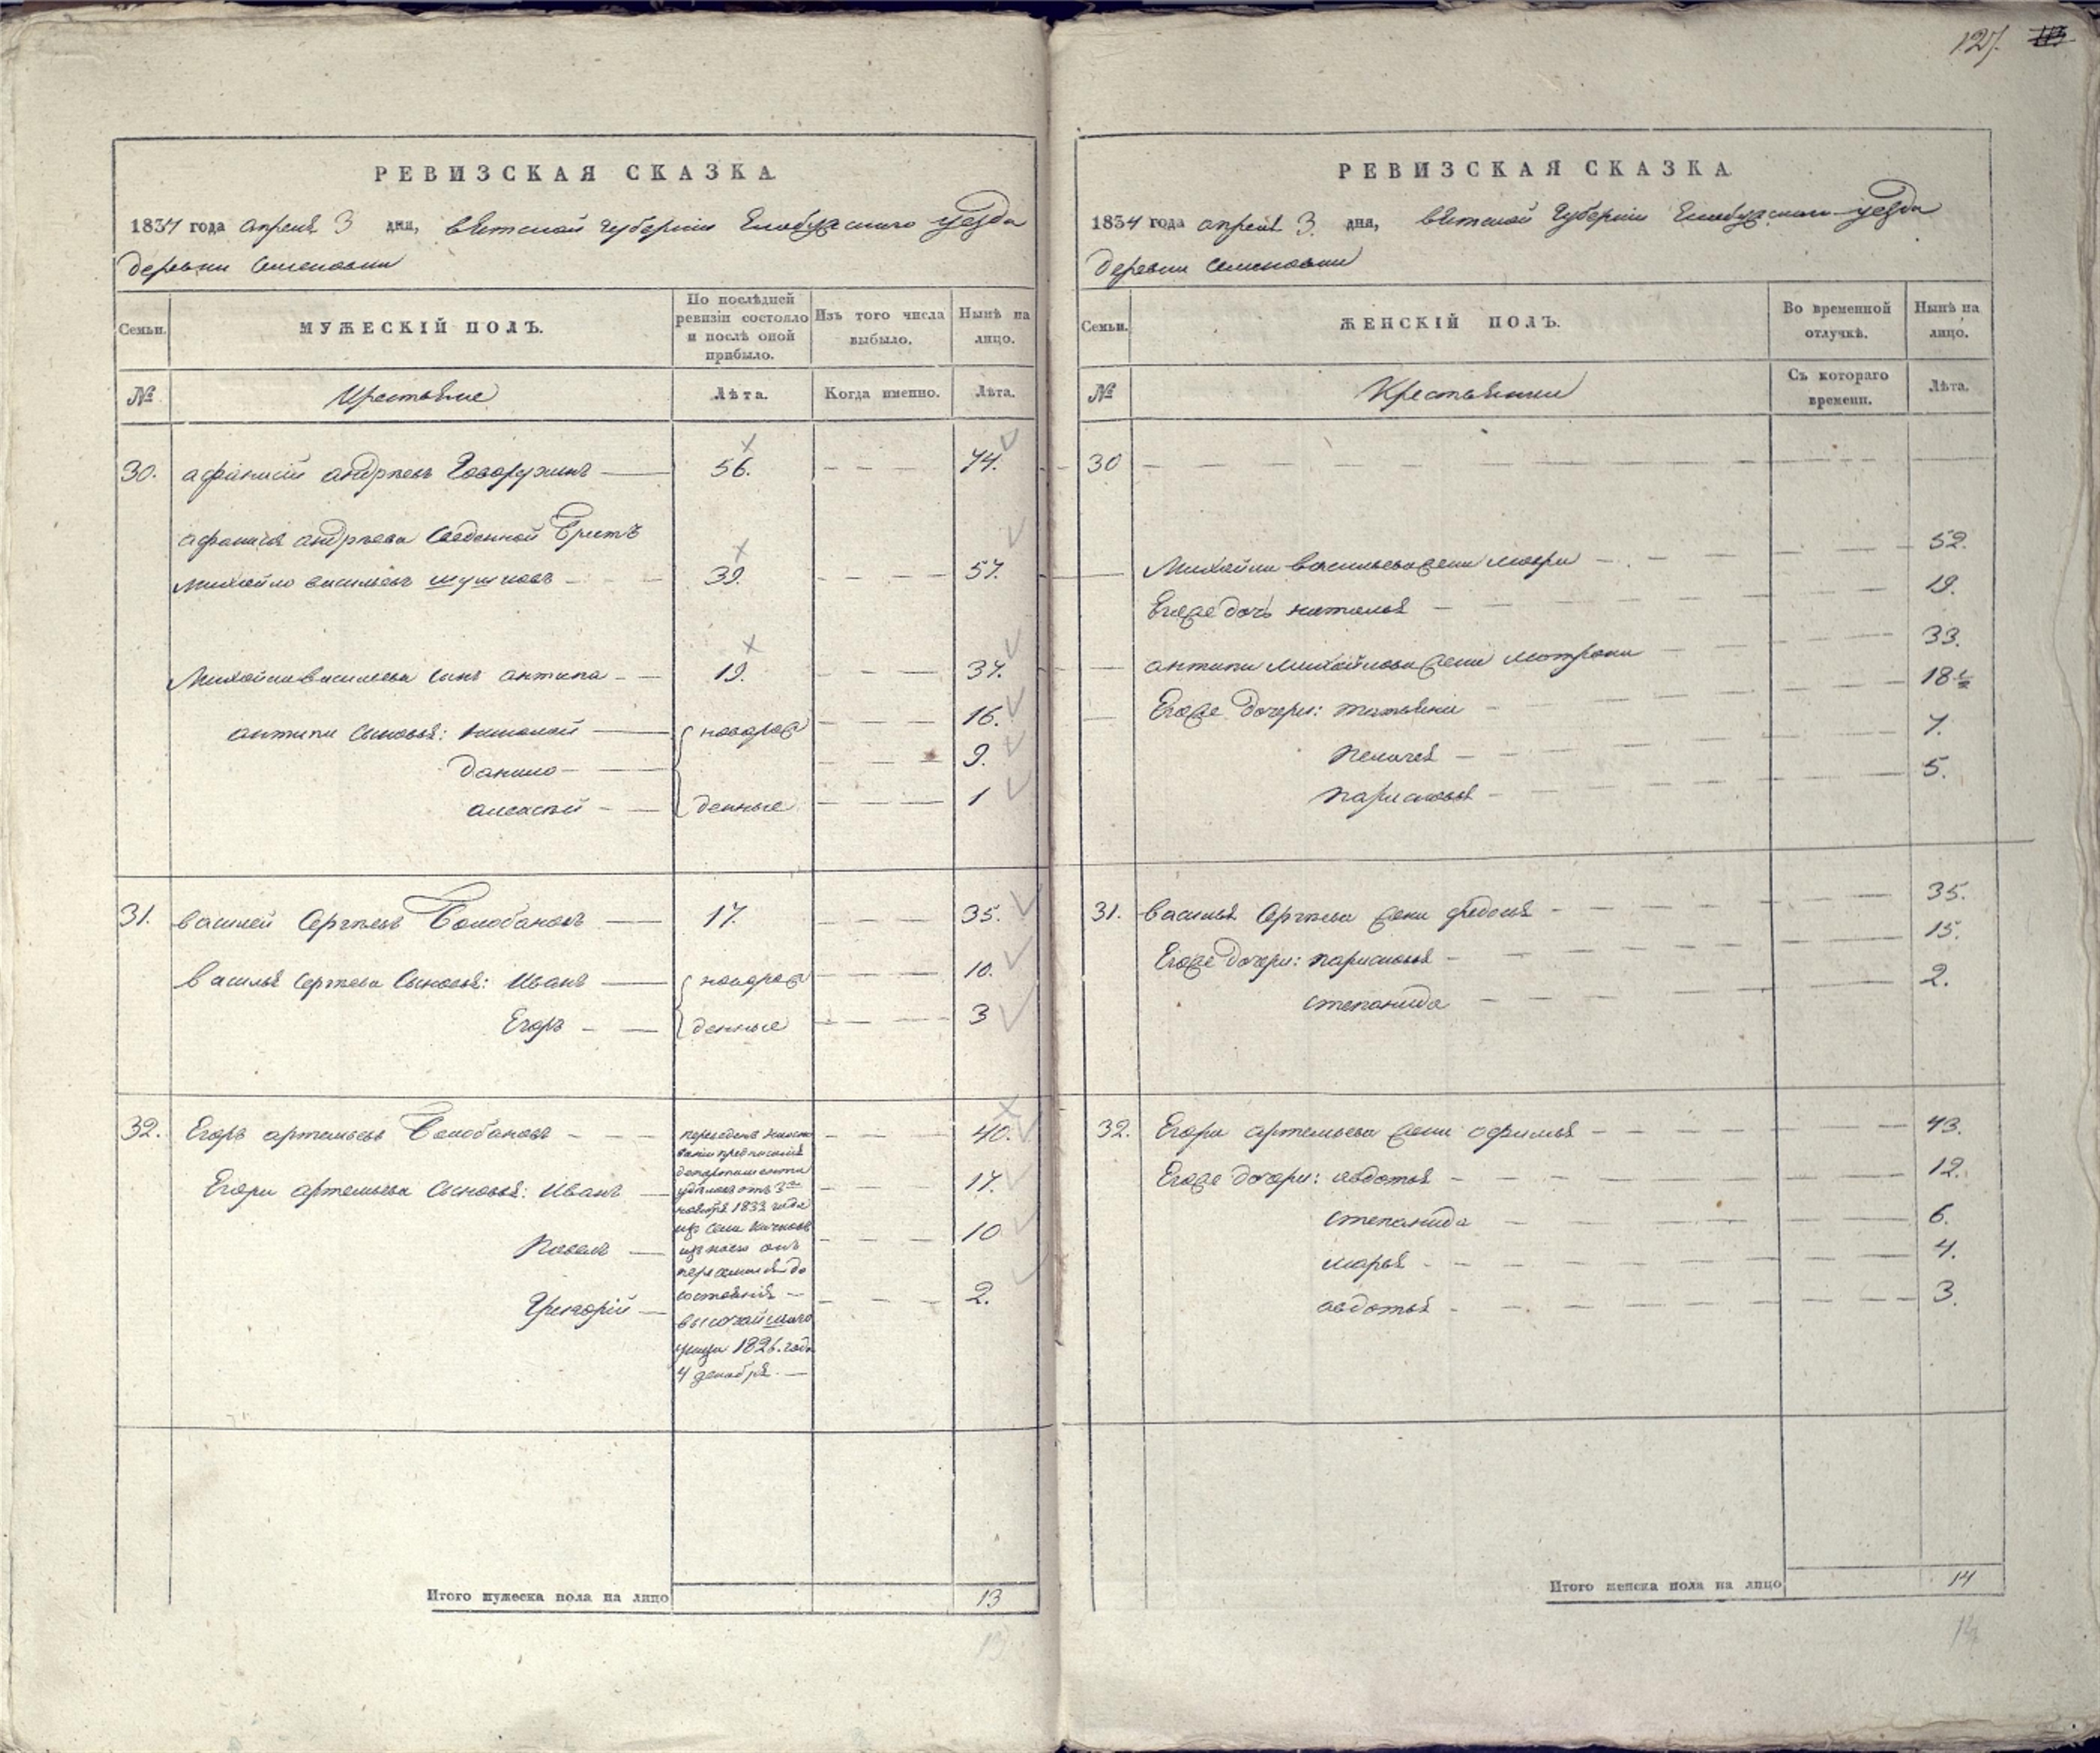 127.
РЕВИЗСКАЯ СКАЗКА.
1834 года апреля 3 дня, вятской губернии Елабужского уезда
деревни Семеновки
Семьи.
МУЖЕСКІЙ ПОЛЪ.
По послѣдней ревизіи состояло и послѣ оной прибыло.
Изъ того числа выбыло.
Нынѣ на лицо.
№
Крестьяне
Лѣта.
Когда именно.
Лѣта.
30. афанасий андреевъ 56. 74.
афанасия андреева сведенной братъ
михайло васильевъ шушковъ 39. 57.
Михайла васильева сынъ антипа 19. 37.
антипы сыновья: николай новорож 16.
данило 9.
алексѣй денные 1
31. василей Сергѣевъ Болобановъ 17. 35.
василья Сергѣева сыновья: Иванъ новорож 10.
Егоръ денные 3
32. Егоръ артемьевъ Болобановъ 40.
переведенъ на осно
вании предписания
департамента
удѣловъ отъ 3го
ноября 1832 года
изъ села
изъ коего онъ
переселился до
состояния
высочайшаго
указа 1826. года
4 декабря.
Егора артемьева сыновья: Иванъ 17.
Павелъ 10
Григорій 2.
Итого мужеска пола на лицо 13
13
РЕВИЗСКАЯ СКАЗКА.
1834 года апреля 3. дня, вятской губернии Елабужского уезда
деревни Семеновки
Семьи.
ЖЕНСКІЙ ПОЛЪ.
Во временной отлучкѣ.
Нынѣ на лицо.
№
Крестьянки
Съ котораго времени.
Лѣта.
30
Михайла васильева жена мавра 52.
Егоже дочь наталья 19.
антипы михайлова жена матрона 33.
Егоже дочери: татьяна 18
пелагея 7.
парасковья 5.
31. василья Сергѣева жена федосья 35.
Егоже дочери: парасковья 15.
степанида 2.
32. Егора артемьева жена офимья 43.
Егоже дочери: авдотья 12.
степанида 6.
марья 4.
авдотья 3.
Итого женска пола на лицо 14
14